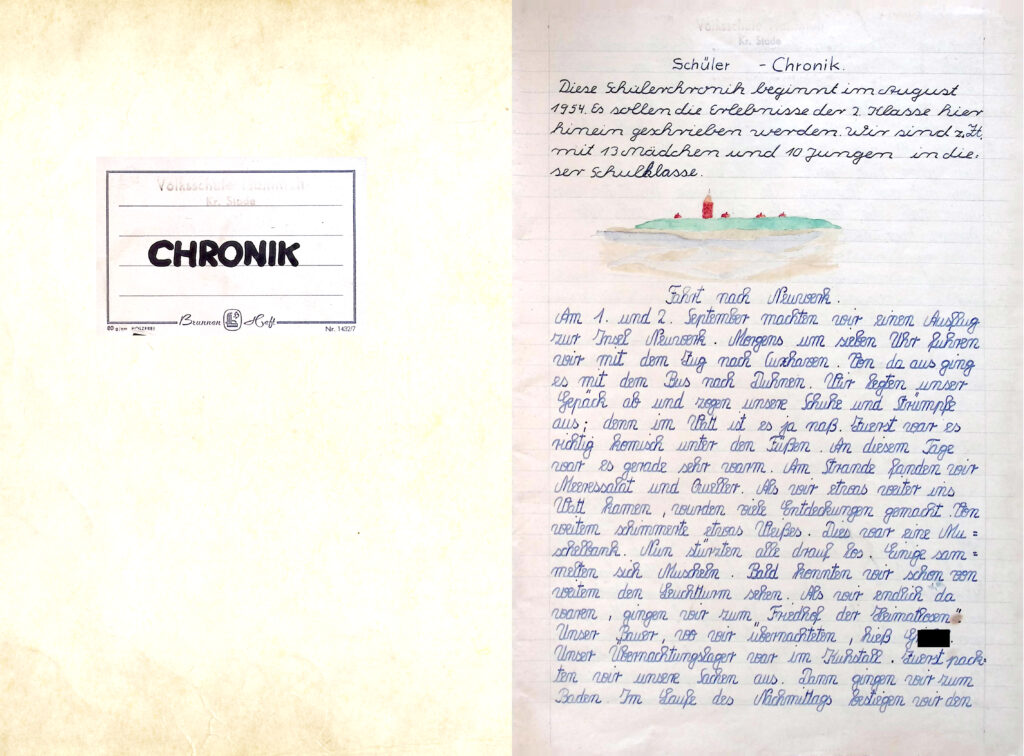 Volksschule
Kr. Stade
CHRONIK
80 g/qm HOLZFREI
Brunnen Heft
Nr. 1432/7
Volksschule
Kr. Stade
Schüler - Chronik.
Diese Schülerchronik beginnt im August
1954. Es sollen die Erlebnisse der 2. Klasse hier
hinein geschrieben werden. Wir sind z. Zt.
mit 13 Mädchen und 10 Jungen in die=
ser Schulklasse.
Fahrt nach Neuwerk.
Am 1. und 2. September machten wir einen Ausflug
zur Insel Neuwerk. Morgens um sieben Uhr fuhren
wir mit dem Zug nach Cuxhaven. Von da aus ging
es mit dem Bus nach Duhnen. Wir legten unser
Gepäck ab und zogen unsere Schuhe und Strümpfe
aus; denn im Watt ist es ja naß. Zuerst war es
richtig komisch unter den Füßen. An diesem Tage
war es gerade sehr warm. Am Strande fanden wir
Meeressalat und Queller. Als wir etwas weiter ins
Watt kamen, wurden viele Entdeckungen gemacht. Von
weitem schimmerte etwas Weißes. Dies war eine Mu=
schelbank. Nun stürzten alle drauf los. Einige sam=
melten sich Muscheln. Bald konnten wir schon von
weitem den Leuchtturm sehen. Als wir endlich da
waren, gingen wir zum „Friedhof der Heimatlosen"
Unser Bauer, wo wir übernachteten, hieß G
Unser Übernachtungslager war im Kuhstall. Zuerst pack=
ten wir unsere Sachen aus. Dann gingen wir zum
Baden. Im Laufe des Nachmittags bestiegen wir den